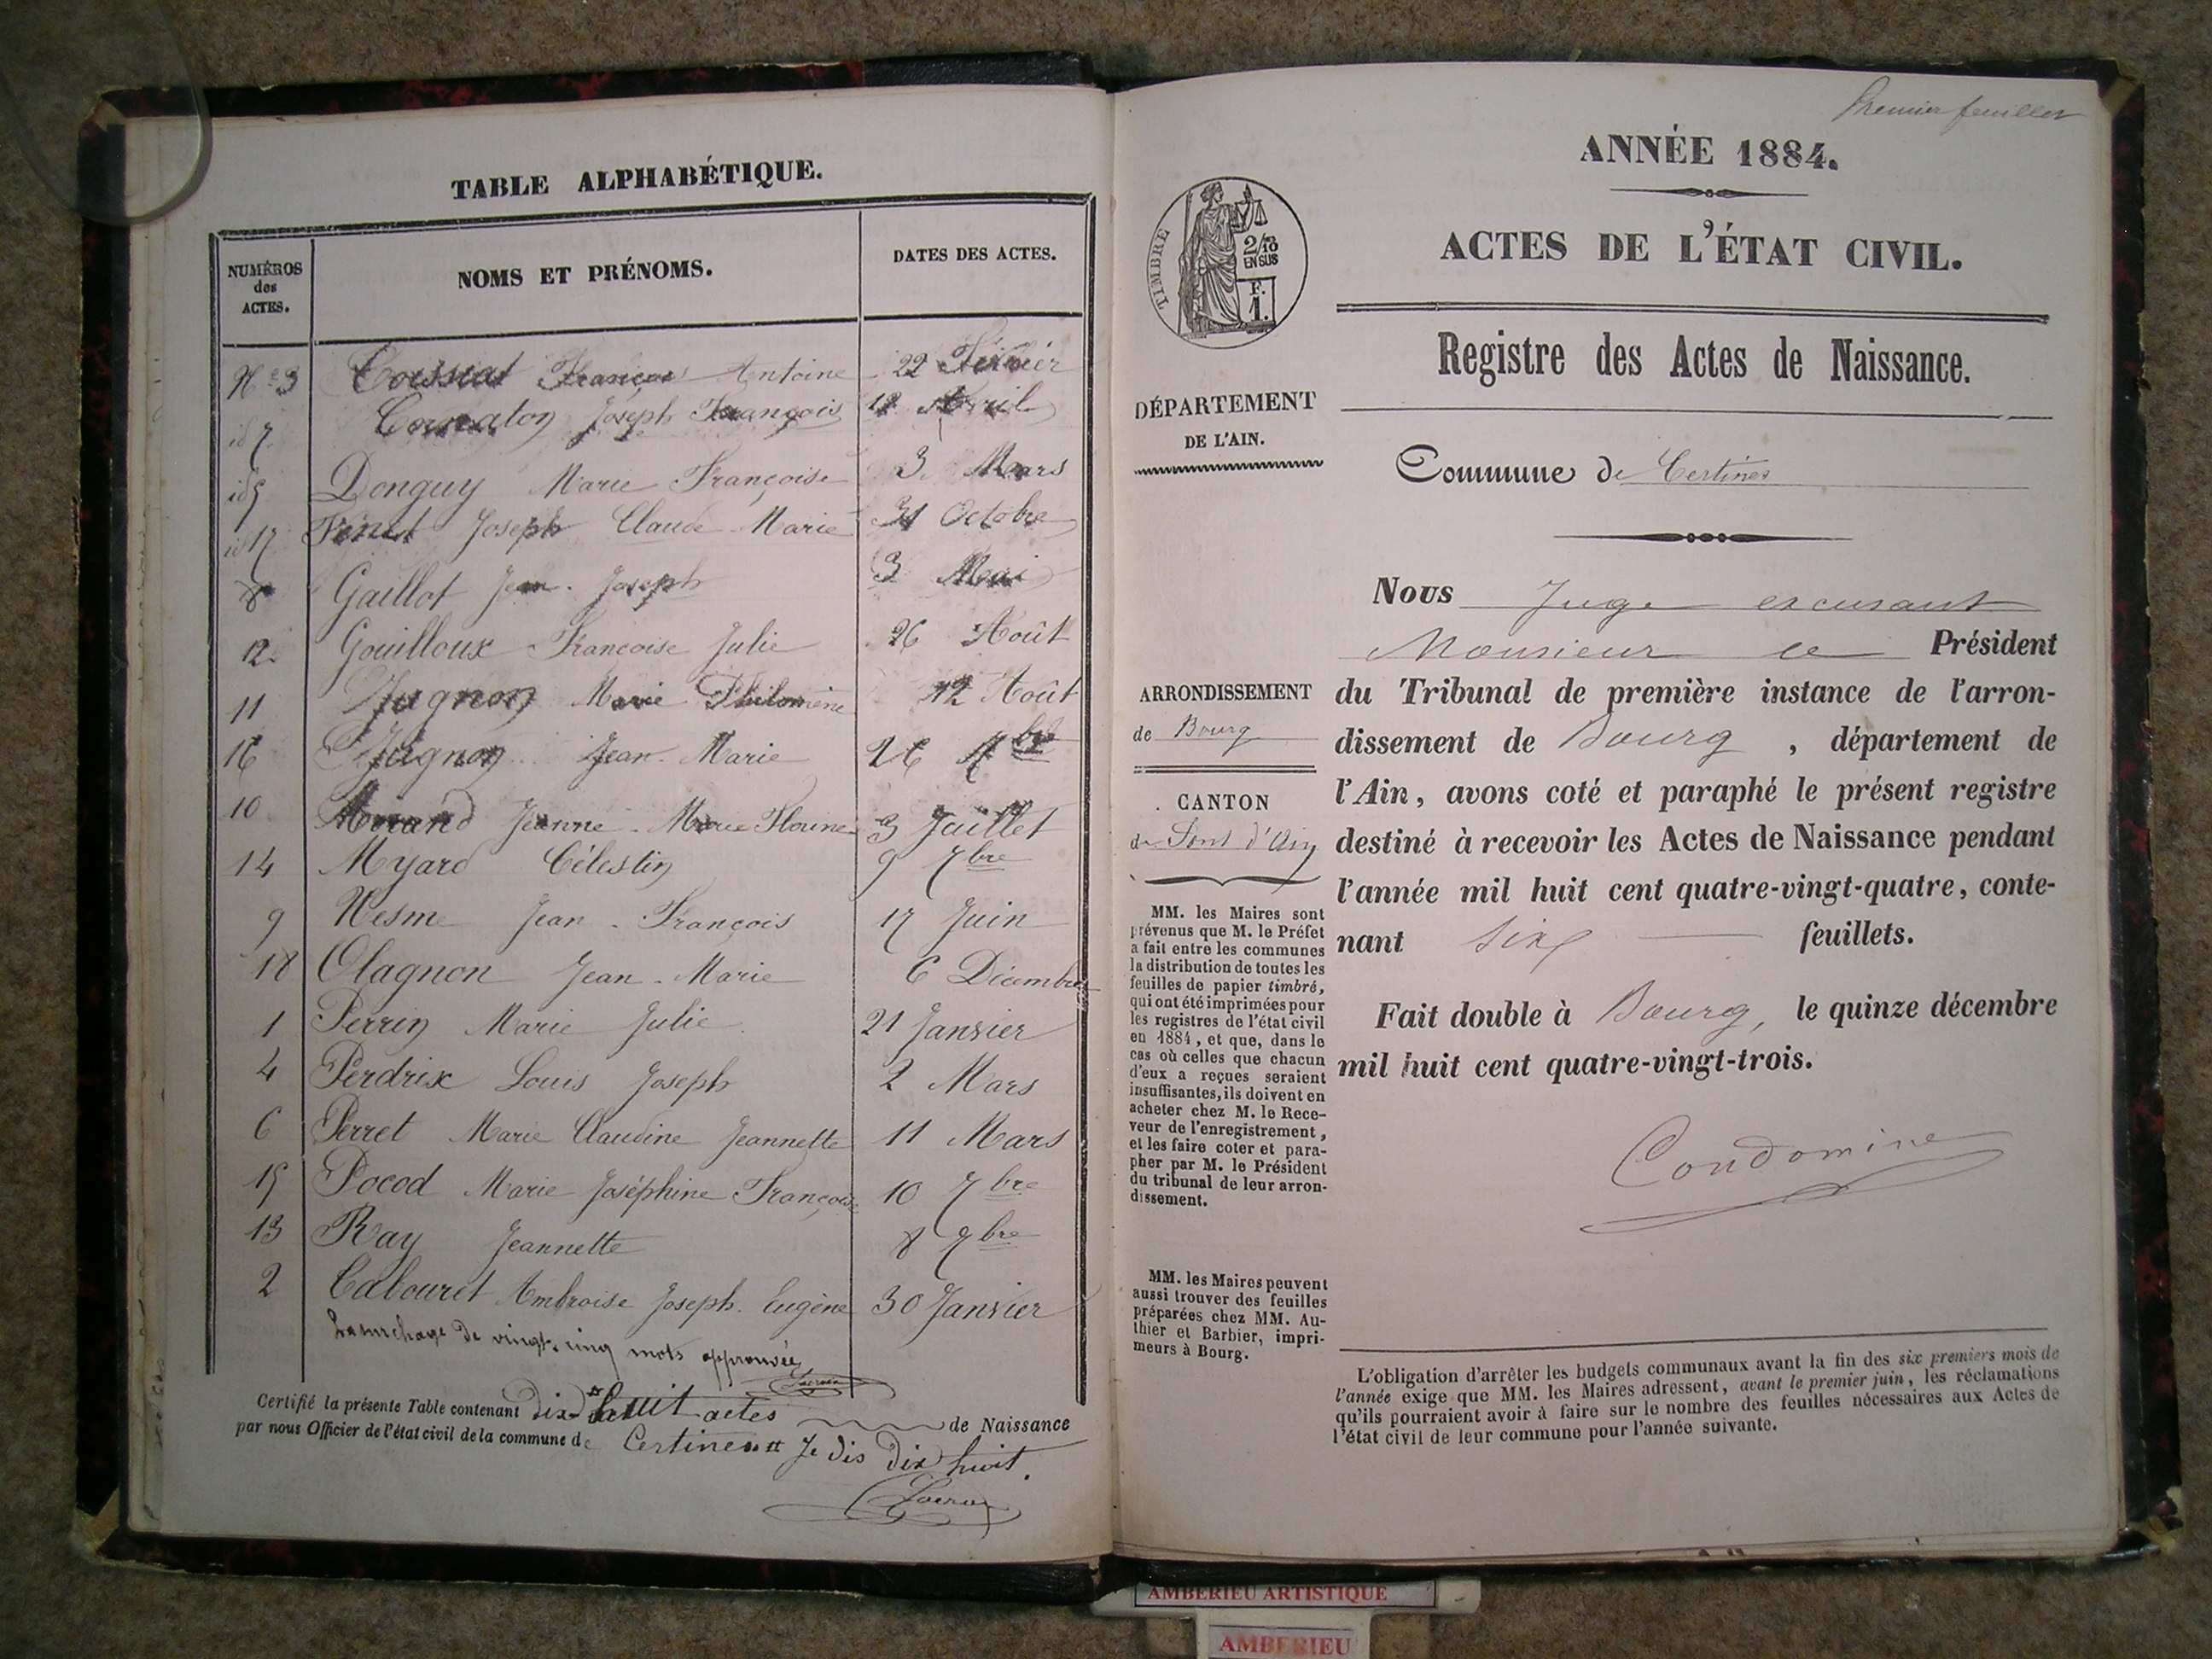 TABLE ALPHABÉTIQUE.
NUMÉROS des ACTES. NOMS ET PRÉNOMS. DATES DES ACTES.
N° 3 Coissiat François Antoine 22 Février
id 7 Cornaton Joseph François 18 Avril
id 5 Donguy Marie Françoise 3 Mars
id 17 Joseph Claude Marie 31 Octobre
8 Gaillot Jean Joseph 3 Mai
12 Gouilloux Françoise Julie 26 Août
11 Jugnon Marie Philomène 12 Août
16 Jugnon Jean Marie 26 7bre
10 Morand Jeanne Marie 3 Juillet
14 Myard Célestin 9 7bre
9 Nesme Jean François 17 Juin
18 Olagnon Jean Marie 6 Décembre
1 Perrin Marie Julie 21 Janvier
4 Perdrix Louis Joseph 2 Mars
6 Perret Marie Claudine Jeannette 11 Mars
15 Pocod Marie Joséphine Françoise 10 7bre
13 Ray Jeannette 8 7bre
2 Cabouret Ambroise Joseph Eugène 30 Janvier
La surchage de vingt-cinq mots approuvée
Certifié la présente Table contenant dix huit actes de Naissance
par nous Officier de l'état civil de la commune de Certines Je dis Dix huit.
Premier feuillet
ANNÉE 1884.
ACTES DE L'ÉTAT CIVIL.
TIMBRE
2/10
EN SUS
F.
1.
Registre des Actes de Naissance.
DÉPARTEMENT
DE L'AIN.
Commune de Certines
Nous Juge excusant
Monsieur le Président
ARRONDISSEMENT
de Bourg
CANTON
de Pont d'Ain
du Tribunal de première instance de l'arron-
dissement de Bourg, département de
l'Ain, avons coté et paraphé le présent registre
destiné à recevoir les Actes de Naissance pendant
l'année mil huit cent quatre-vingt-quatre, conte-
nant six feuillets.
Fait double à Bourg, le quinze décembre
mil huit cent quatre-vingt-trois.
Condomine
MM. les Maires sont
prévenus que M. le Préfet
a fait entre les communes
la distribution de toutes les
feuilles de papier timbré,
qui ont été imprimées pour
les registres de l'état civil
en 1884, et que, dans le
cas où celles que chacun
d'eux a reçues seraient
insuffisantes, ils doivent en
acheter chez M. le Rece-
veur de l'enregistrement,
et les faire coter et para-
pher par M. le Président
du tribunal de leur arron-
dissement.
MM. les Maires peuvent
aussi trouver des feuilles
préparées chez MM. Au-
thier et Barbier, impri-
meurs à Bourg.
L'obligation d'arrêter les budgets communaux avant la fin des six premiers mois de
l'année exige que MM. les Maires adressent, avant le premier juin, les réclamations
qu'ils pourraient avoir à faire sur le nombre des feuilles nécessaires aux Actes de
l'état civil de leur commune pour l'année suivante.
AMBERIEU ARTISTIQUE
AMBERIEU